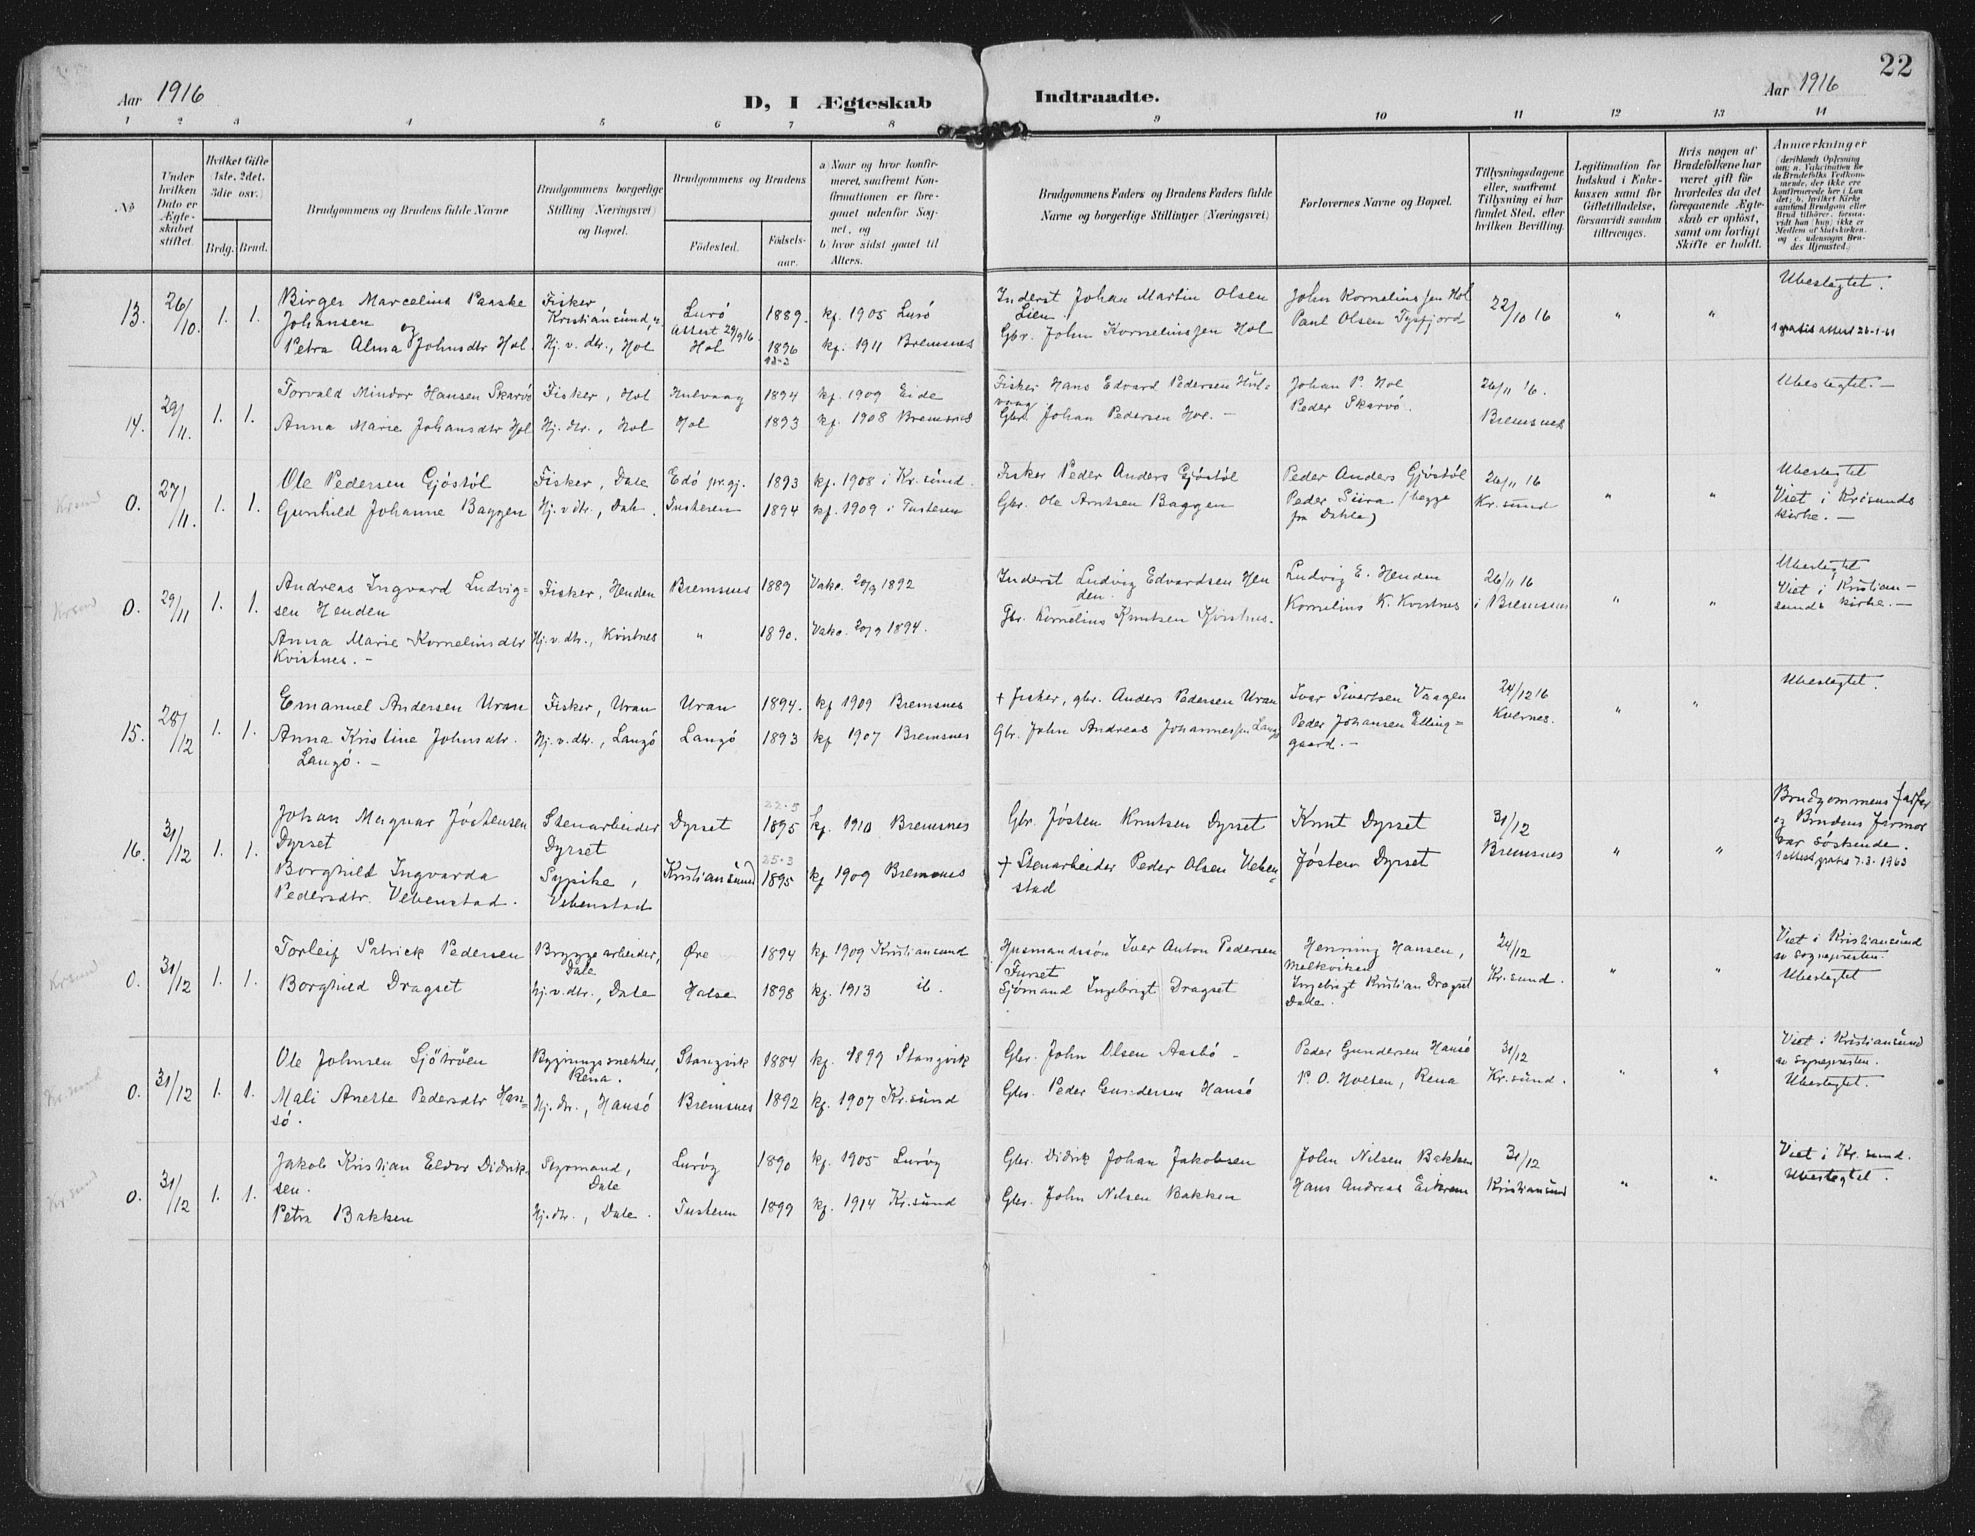 22
Aar 1916
D, I Ægteskab Indtraadte.
Aar 1916
1 2 3 4 5 6 7 8 9 10 11 12 13 14
No
Under hvilken Dato er Ægteskabet stiftet.
Hvilket Gifte (1ste, 2det, 3die osv.)
Brdg. Brud.
Brudgommens og Brudens fulde Navne
Brudgommens borgerlige Stilling (Næringsvei) og Bopæl.
Brudgommens og Brudens
Fødested. Fødselsaar.
a) Naar og hvor konfirmeret, saafremt Konfirmationen er foregaaet udenfor Sognet, og
b) hvor sidst gaaet til Alters.
Brudgommens Faders og Brudens Faders fulde Navne og borgerlige Stillinger (Næringsvei)
Forlovernes Navne og Bopæl.
Tillysningsdagene eller, saafremt Tillysning ei har fundet Sted, efter hvilken Bevilling.
Legitimation for Indskud i Enkekassen samt for Giftetilladelse, forsaavidt saadan tiltrænges.
Hvis nogen af Brudefolkene har været gift før hvorledes da det foregaaende Ægteskab er opløst, samt om lovligt Skifte er holdt.
Anmærkninger
(deriblandt Oplysning om: a. Vakcination for de Brudefolks Vedkommende, der ikke ere konfirmerede her i Landet; b. hvilket Kirkesamfund Brudgom eller Brud tilhører, forsaavidt han (hun) ikke er Medlem af Statskirken, og c. udensogns Brudes Hjemsted.)
13. 26/10. 1. 1.
Birger Marcelius Paaske Johansen og
Petra Alma Johnsdtr Hol.
Fisker, Kristiansund, N.
Hj. v. dtr., Hol
Lurö
Attest 29/9 16
Hol
1889.
1896
12-2
kf. 1905 Lurö
kf. 1911 Bremsnes
Inderst Johan Martin Olsen Lien
Gbr. John Kornelinssen Hol
John Kornelinssen Hol
Paul Olsen Tysfjord
22/10 16
" "
Ubeslegtet.
1 gratis attest 26-1-61
14. 29/11. 1. 1.
Torvald Mindor Hansen Skarvö
Anna Marie Johansdtr Hol
Fisker, Hol
Hj. dtr., Hol
Hulvaag
Hol
1894
1893
kf. 1909 Eide
kf. 1908 Bremsnes
Fisker Hans Edvard Pedersen Hulvaag
Gbr. Johan Pedersen Hol. —
Johan P. Hol
Peder Skarvö.
26/11 16.
Bremsnes
Ubeslegtet. —
Kr.sund
0. 27/11. 1. 1.
Ole Pedersen Gjöstöl
Gunhild Johanne Baggen
Fisker, Dale
Hj. v dtr., Dale.
Edö pr.gj.
Tusteren
1893
1894
kf. 1908 i Kr.sund.
kf. 1909 i Tusteren
Fisker Peder Anders Gjöstöl
Gbr. Ole Arntsen Baggen
Peder Anders Gjöstöl
Peder Siira (begge fra Dahle)
26/11 16
Kr.sund
" "
Ubeslegtet
Viet i Kr.sunds kirke. —
Kr.sund
0. 29/11 1. 1.
Andreas Ingvard Ludvigsen Henden
Anna Marie Kornelinsdtr Kvistnes. —
Fisker, Henden
Hj. v dtr., Kvistnes
Bremsnes
"
1889
1890.
Vakc. 20/9 1892
Vakc. 20/9 1894.
Inderst Ludvig Edvardsen Henden.
Gbr. Kornelius Knutsen Kvistnes.
Ludvig E. Henden
Kornelius K. Kvistnes
26/11 16
i Bremsnes
" "
Ubeslegtet
Viet i Kristiansunds kirke. —
15. 28/12 1. 1.
Emanuel Andersen Uran
Anna Kristine Johnsdtr. Langö. —
Fisker, Uran
Hj. v. dtr., Langö
Uran
Langö
1894.
1893
kf 1909 Bremsnes
kf 1907 Bremsnes
+ fisker, gbr. Anders Pedersen Uran
Gbr. John Andreas Johannessen Langö
Ivar Sivertsen Vaagen
Peder Johansen Ellinggaard. —
24/12 16
Kvernes.
" "
Ubeslegtet.
16. 31/12 1. 1.
Johan Magnar Jöstensen Dyrset
Borghild Ingvarda Pedersdtr. Vebenstad.
Stenarbeider Dyrset
Sypike, Vebenstad
Dyrset
Kristiansund
22-5
1895
25-3
1895
kf. 1910 Bremsnes
kf 1909 Bremsnes
Gbr. Jøsten Knutsen Dyrset
+ Stenarbeider Peder Olsen Vebenstad
Knut Dyrset
Jøsten Dyrset
31/12
Bremsnes
" "
Brudgommens farfar og Brudens farmor var søskende.
1 attest gratis 7.3.1963
Kr.sund
0. 31/12 1. 1.
Torleif Patrick Pedersen
Borghild Dragset
Bryggearbeider, Dale
Hj. v. dtr., Dale
Øre
Halse
1894
1898
kf 1909 Kristiansund
kf. 1913 ib.
Husmandssön Iver Anton Pedersen Furset
Sjömand Ingebrigt Dragset
Henning Hansen, Melkviken
Ingebrigt Kristian Dragset Dale.
24/12
Kr.sund.
" "
Viet i Kristiansund av Sognepresten.
Ubeslegtet
Kr.sund
0. 31/12 1. 1.
Ole Johnsen Sjötröen
Mali Anette Pedersdtr Hansö.
Bygningssnekker, Rena.
Hj. dtr., Hansö
Stangvik
Bremsnes
1884
1892
kf. 1899 Stangvik
kf. 1907 Kr.sund
Gbr. John Olsen Aasbö —
Gbr. Peder Gundersen Hansö
Peder Gundersen Hansö
P. O. Holsen, Rena
31/12
Kr.sund.
" "
Viet i Kristiansund av Sognepresten.
Ubeslegtet.
Kr.sund
0. 31/12 1. 1.
Jakob Kristian Eldor Didriksen.
Petra Bakken
Styrmand, Dale
Hj. dtr., Dale.
Luröy
Tusteren
1890
1899
kf. 1905 Luröy
kf. 1914 Kr.sund
Gbr. Didrik Johan Jakobsen
Gbr. John Nilsen Bakken
John Nilsen Bakken
Hans Andreas Eikrem
31/12
Kristiansund
" "
Viet i Kr.sund.
Ubeslegtet.